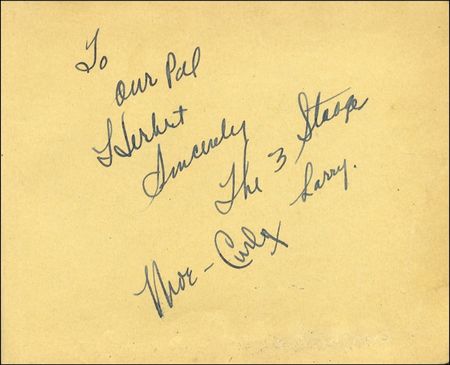 To
Our Pal
Herbert
Sincerely
The 3 Stooges
Larry.
Moe - Curly